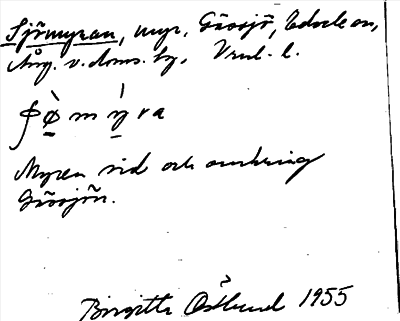 Sjömyran, myr, Gåssjö, Edsele sn,
Ång. v. doms. by. Vrml. l.
ʃø̀ mỳra
Myren vid och omkring
Gåssjön.
Birgitta Östlund 1955